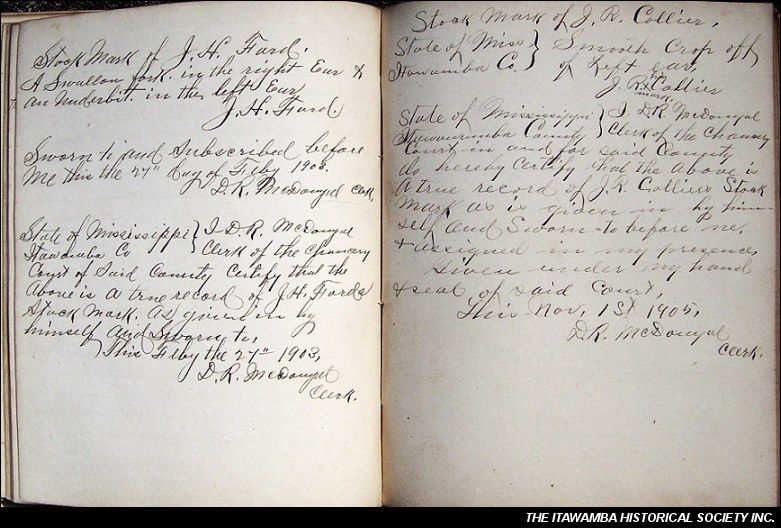 Stock Mark of J. H. Ford.
A Swallow fork in the right Ear &
an Underbit in the left Ear
J. H. Ford
Sworn to and Subscribed before
me this the 27" day of Feby 1903.
D. R. McDougal Clerk.
State of Mississippi } I D. R. McDougal
Itawamba Co } Clerk of the Chancery
Court of Said County Certify that the
above is a true record of J. H. Fords
Stock Mark, as given in by
himself and Sworn to,
This Feby the 27" 1903,
D. R. McDougal
Clerk.
Stock Mark of J. R. Collier,
State of Miss } Smooth Crop off
Itawamba Co. } of Left ear,
J. R. x Collier
mark
State of Mississippi } I D. R. McDougal
County } Clerk of the Chancery
Court in and for said County
do hereby Certify that the above is
a true record of J. R. Colliers Stock
Mark as is given in by him
self and Sworn to before me,
& assigned in my presence,
Given under my hand
& seal of said Court,
This Nov, 1st 1905,
D. R. McDougal
Clerk.
THE ITAWAMBA HISTORICAL SOCIETY INC.